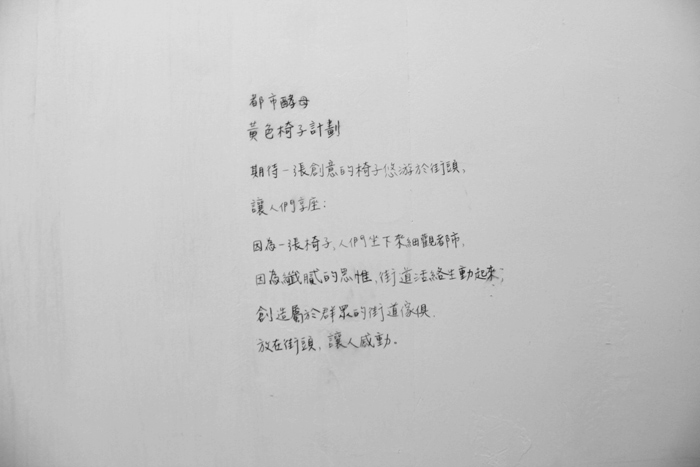 都市酵母
黃色椅子計劃
期待一張創意的椅子悠游於街頭,
讓人們享座:
因為一張椅子,人們坐下來細觀都市,
因為纖膩的思惟,街道活絡生動起來,
創造屬於群眾的街道傢俱,
放在街頭,讓人感動.